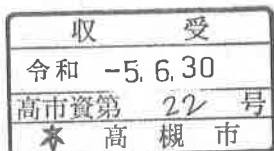 収 受
令和 -5.6.30
高市資第 22 号
高槻市